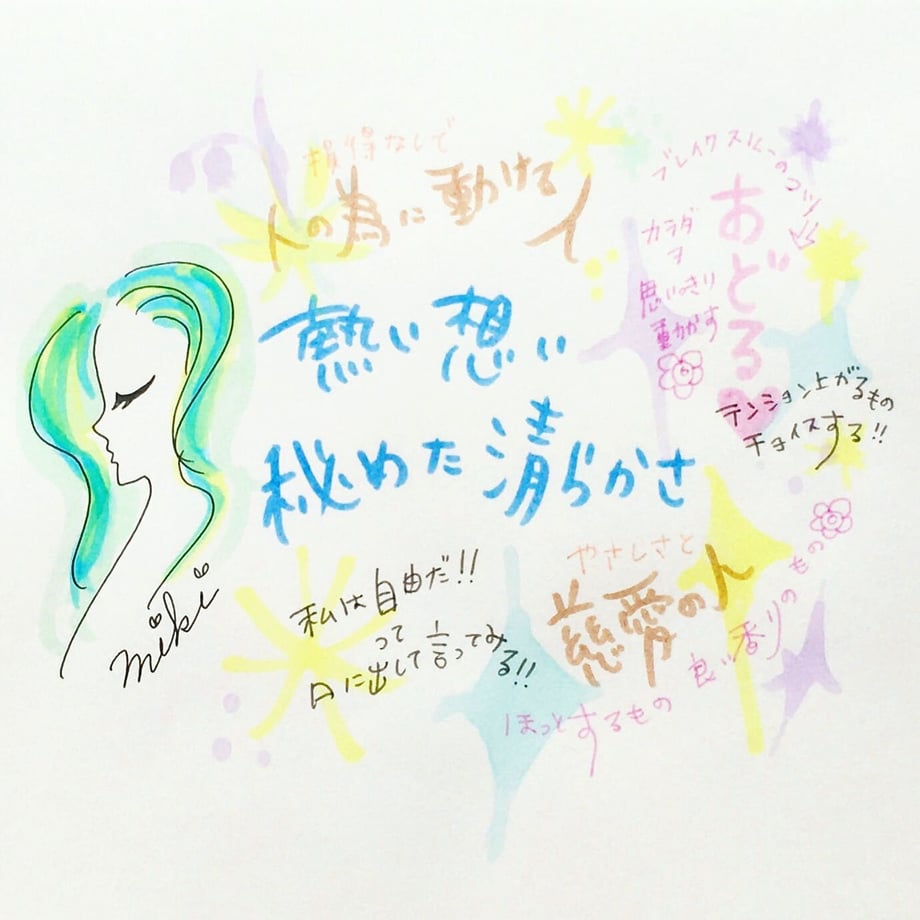 損得なしで
人の為に動ける人
ブレイクスルーのコツ
おどる
カラダ
ヲ
思いっきり
動かす
熱い想い
テンション上がるもの
チョイスする!!
秘めた清らかさ
やさしさと
慈愛の人
私は自由だ!!
って
口に出して言ってみる!!
良い香りのもの
ほっとするもの
miki